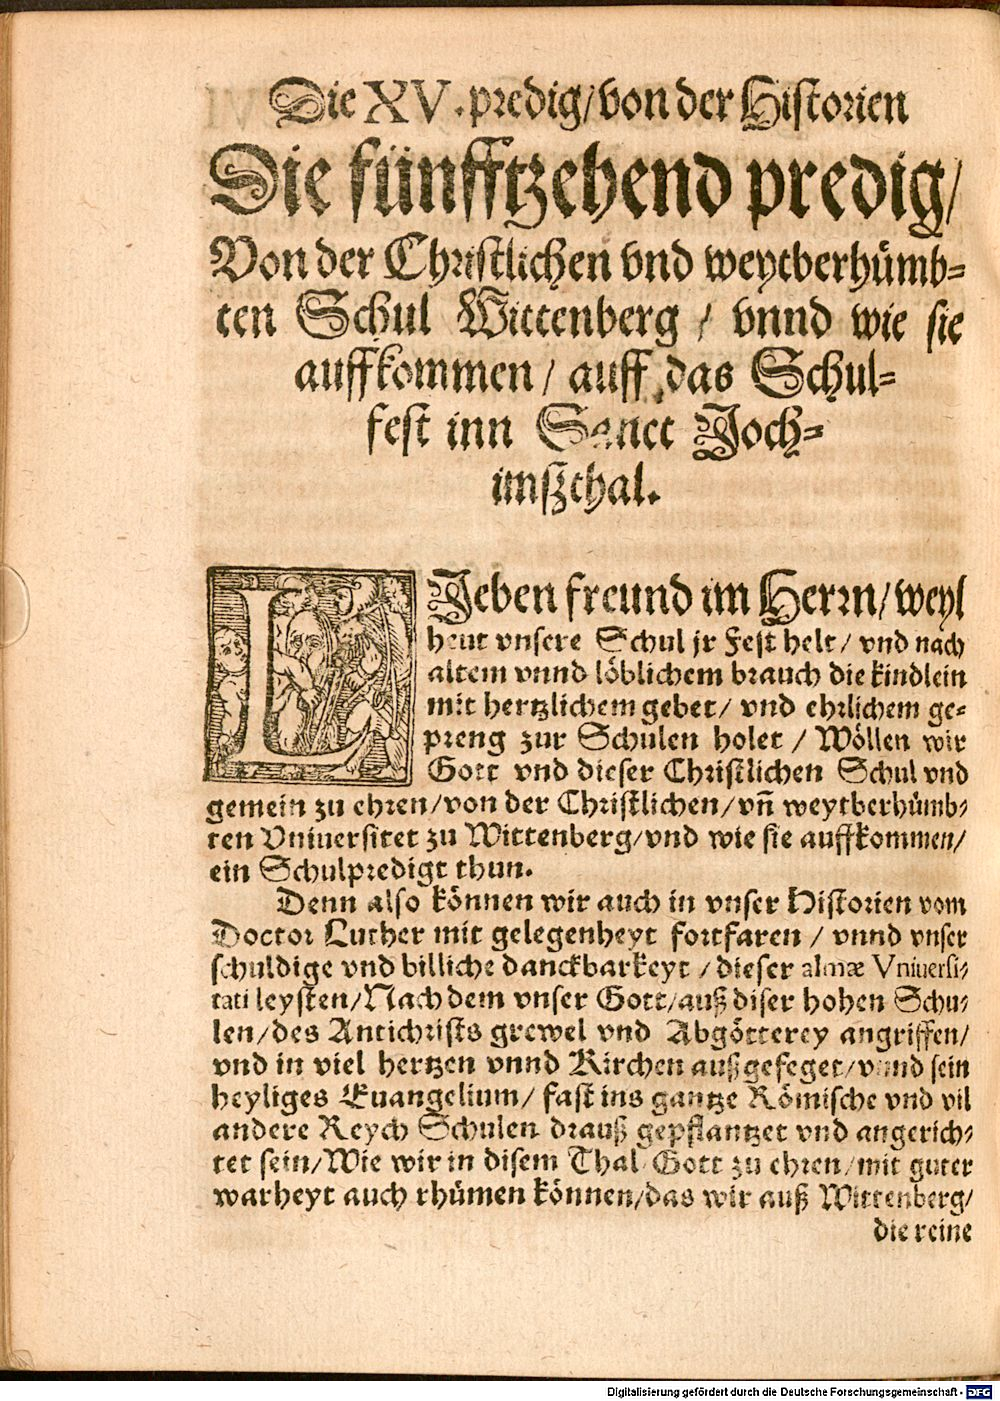 Die XV. predig/ von der Historien
Die fünfftzehend predig/
Von der Christlichen vnd weytberhümb-
ten Schul Wittenberg / vnnd wie sie
auffkommen / auff das Schul-
fest inn Sanct Joch-
imßthal.
LJeben freund im Herrn/ weyl
heut vnsere Schul jr Fest helt/ vnd nach
altem vnnd löblichem brauch die kindlein
mit hertzlichem gebet/ vnd ehrlichem ge-
preng zur Schulen holet / Wöllen wir
Gott vnd dieser Christlichen Schul vnd
gemein zu ehren/ von der Christlichen/ vñ weytberhümb-
ten Vniuersitet zu Wittenberg/ vnd wie sie auffkommen/
ein Schulpredigt thun.
Denn also können wir auch in vnser Historien vom
Doctor Luther mit gelegenheyt fortfaren / vnnd vnser
schuldige vnd billiche danckbarkeyt / dieser almæ Vniuersi-
tati leysten/ Nach dem vnser Gott/ auß diser hohen Schu-
len/ des Antichrists grewel vnd Abgötterey angriffen/
vnd in viel hertzen vnnd Kirchen außgefeget/ vnnd sein
heyliges Euangelium/ fast ins gantze Römische vnd vil
andere Reych Schulen drauß gepflantzet vnd angerich-
tet sein/ Wie wir in disem Thal Gott zu ehren/ mit guter
warheyt auch rhümen können/ das wir auß Wittenberg/
die reine
Digitalisierung gefördert durch die Deutsche Forschungsgemeinschaft - DFG